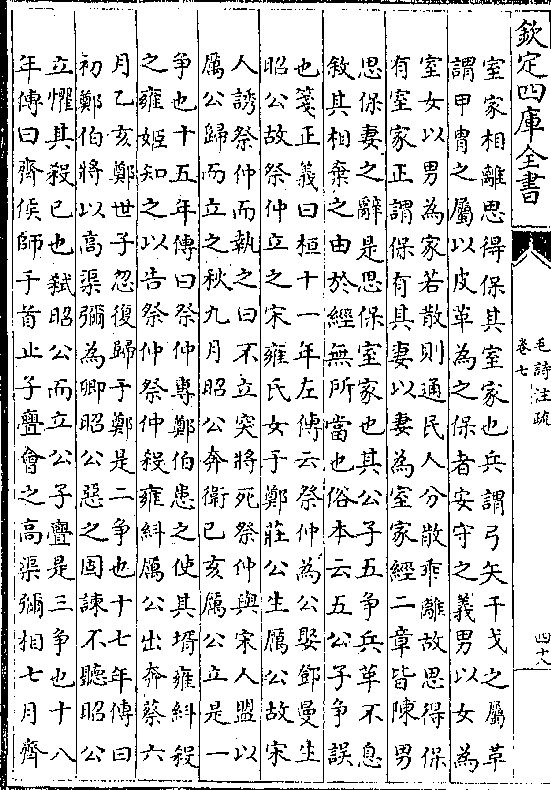 欽定四庫全書
毛詩注疏
卷七
四十八
室家相離思得保其室家也兵謂弓矢干戈之屬革
謂甲胄之屬以皮革為之保者安守之義男以女為
室女以男為家若散則通民人分散乖離故思得保
有室家正謂保有其妻以妻為室家經二章皆陳男
思保妻之辭是思保室家也其公子五爭兵革不息
敘其相棄之由於經無所當也俗本云五公子爭誤
也箋正義曰桓十一年左傳云祭仲為公娶鄧曼生
昭公故祭仲立之宋雍氏女于鄭莊公生厲公故宋
人誘祭仲而執之曰不立突將死祭仲與宋人盟以
厲公歸而立之秋九月昭公奔衛已亥厲公立是一
爭也十五年傳曰祭仲專鄭伯患之使其壻雍糾殺
之雍姬知之以告祭仲祭仲殺雍糾厲公出奔蔡六
月乙亥鄭世子忽復歸于鄭是二爭也十七年傳曰
初鄭伯將以高渠彌為卿昭公惡之固諫不聽昭公
立懼其殺已也弒昭公而立公子亹是三爭也十八
年傳曰齊侯師于首止子亹會之高渠彌相七月齊